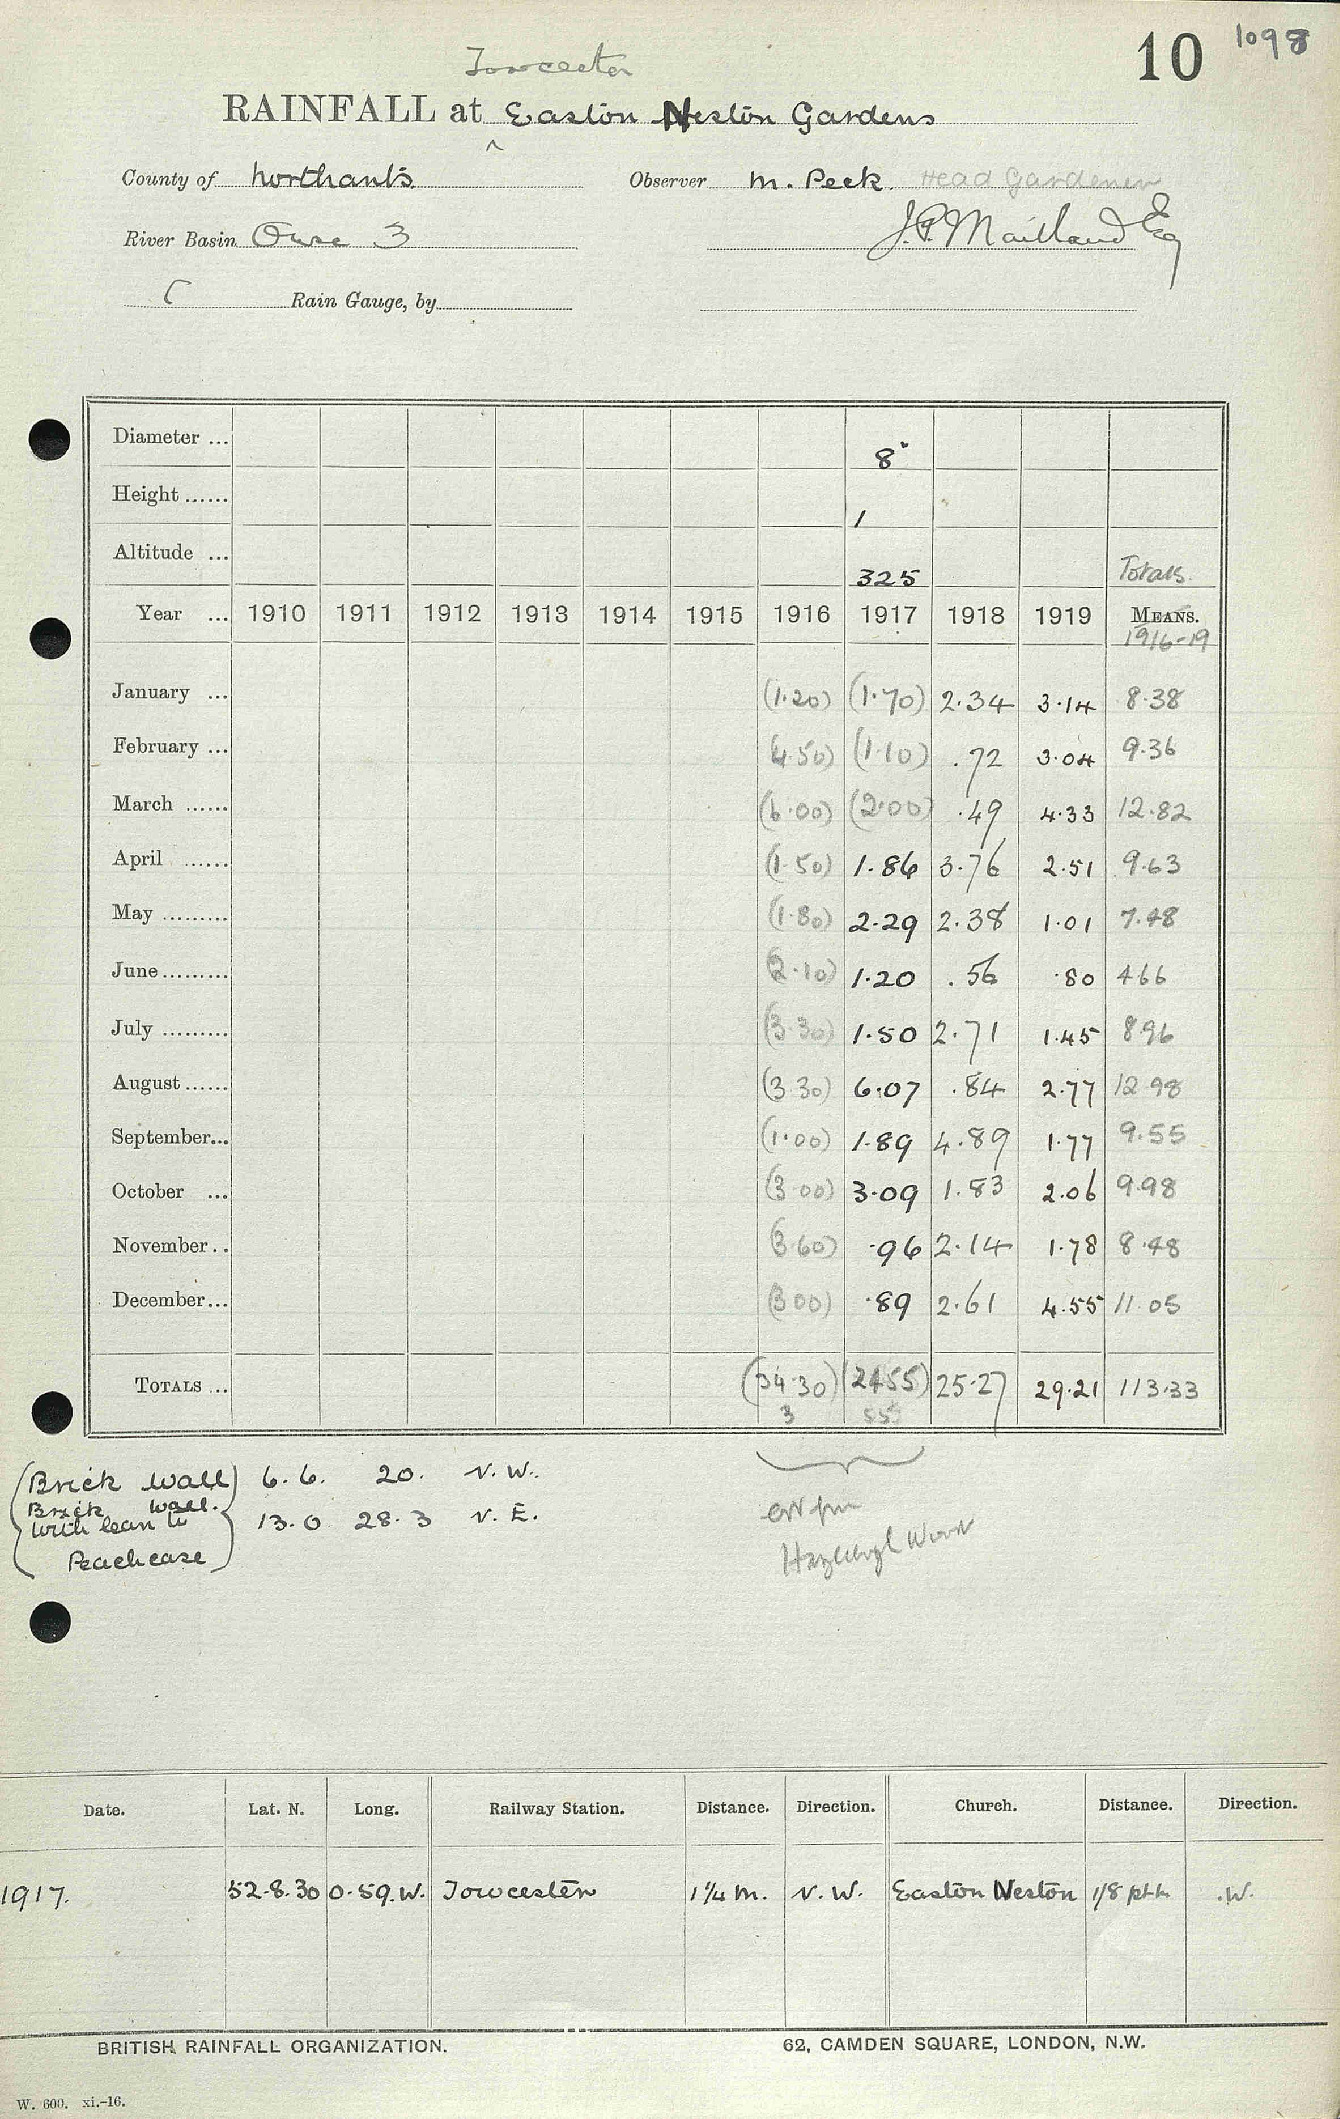 10 1098
Towcester
RAINFALL at Easton Neston Gardens
^
County of Northants Observer M. Peck. Head Gardener
River Basin Ouse 3 J.P. Maitland Esq
C Rain Gauge, by
Diameter ... 8"
Height ...... 1
Altitude ... 325 Totals.
Year ... 1910 1911 1912 1913 1914 1915 1916 1917 1918 1919 MEANS.
1916-19
January ... (1.20) (1.70) 2.34 3.14 8.38
February ... (4.50) (1.10) .72 3.04 9.36
March ...... (6.00) (2.00) .49 4.33 12.82
April ...... (1.50) 1.86 3.76 2.51 9.63
May ......... (1.80) 2.29 2.38 1.01 7.48
June ......... (2.10) 1.20 .56 .80 4 66
July ......... (3.30) 1.50 2.71 1.45 8 96
August ...... (3.30) 6.07 .84 2.77 12 98
September... (1.00) 1.89 4.89 1.77 9.55
October ... (3.00) 3.09 1.83 2.06 9.98
November .. (3.60) .96 2.14 1.78 8.48
December... (3 00) .89 2.61 4.55 11.05
TOTALS ... (34.30) (24 55) 25.27 29.21 113.33
3 55
(Brick wall) 6.6. 20. N.W.
Brick wall.
with lean to 13.0 28.3 N.E.
Peach case
est from
Hazelborough Wood
Date. Lat. N. Long. Railway Station. Distance. Direction. Church. Distance. Direction.
1917. 52-8.30 0.59.W. Towcester 1 1/4 m. N.W. Easton Neston 1/8 .W.
BRITISH RAINFALL ORGANIZATION. 62, CAMDEN SQUARE, LONDON, N.W.
W. 600. xi.-16.